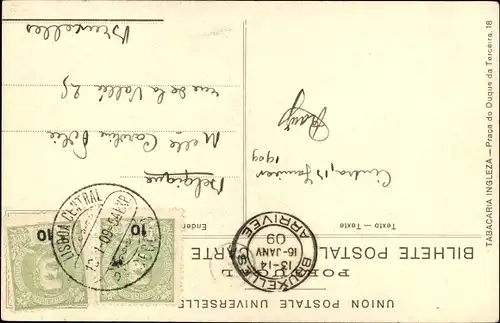 UNION POSTALE UNIVERSELLE
PORTUGAL
BILHETE POSTAL
CARTE
Texto — Texte
Cintra, 13 Janvier
1909
Ender
Belgique
Melle Caroline
rue de la Vallée 25
Bruxelles
TABACARIA INGLEZA — Praça do Duque da Terceira, 18
LISBOA CENTRAL
10
10
BRUXELLES
13-14
16-JANV
09
ARRIVEE